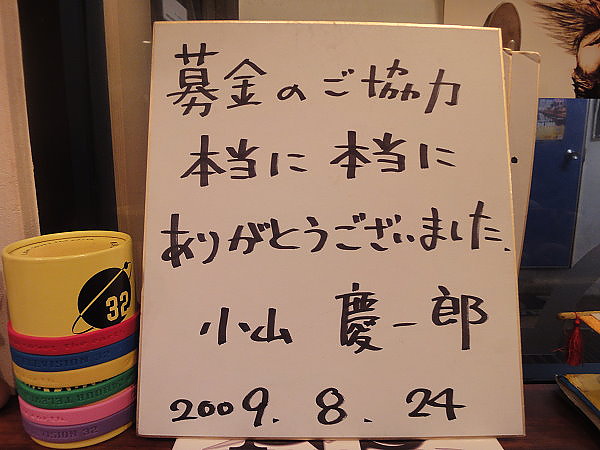 募金のご協力
本当に 本当に
ありがとうございました.
小山 慶一郎
2009. 8. 24
32
VISION 32